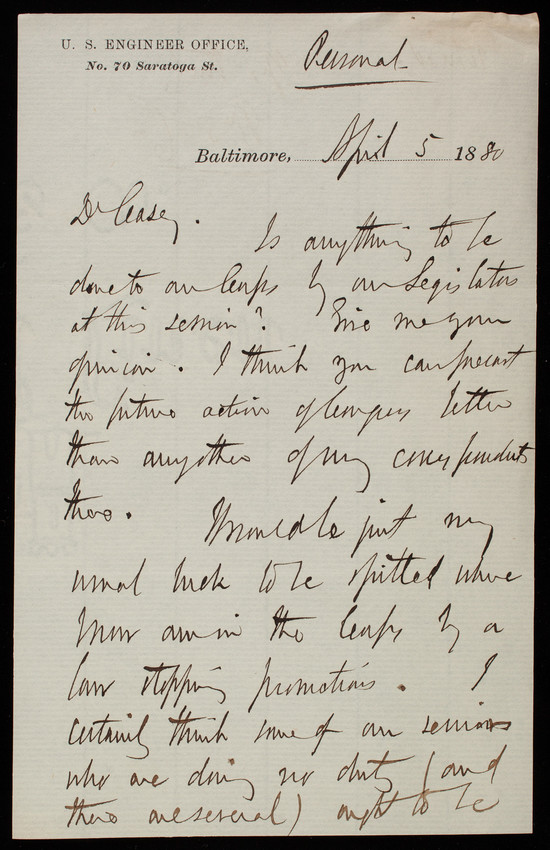 U. S. ENGINEER OFFICE,
No. 70 Saratoga St.
Personal
Baltimore, April 5 1880
Dr Casey. Is anything to be
done to our Corps by our Legislators
at this session? Give me your
opinion. I think you can forecast
the future action of Congress better
than any other of my correspondents
there. Would be just my
usual luck to be spitted where
now am in the Corps by a
law stopping promotions. I
certainly think some of our seniors
who are doing no duty (and
there are several) ought to be